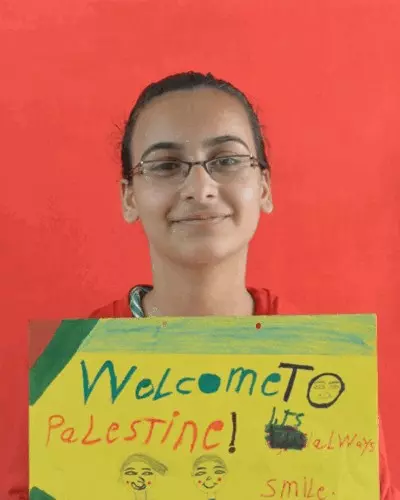 WelcomeTO
Palestine!
lets
always
smile.